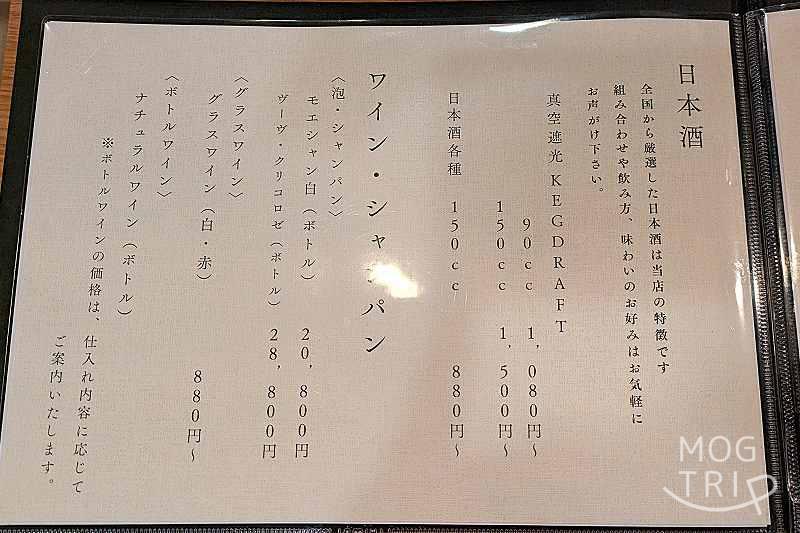 日本酒
全国から厳選した日本酒は当店の特徴です
組み合わせや飲み方、味わいのお好みはお気軽に
お声がけ下さい。
真空遮光 KEGDRAFT
90cc 1,080円〜
150cc 1,500円〜
日本酒各種 150cc 880円〜
ワイン・シャンパン
〈泡・シャンパン〉
モエシャン白(ボトル) 20,800円
ヴーヴ・クリコロゼ(ボトル) 28,800円
〈グラスワイン〉
グラスワイン(白・赤) 880円〜
〈ボトルワイン〉
ナチュラルワイン(ボトル)
※ボトルワインの価格は、仕入れ内容に応じて
ご案内いたします。
MOG
TRIP